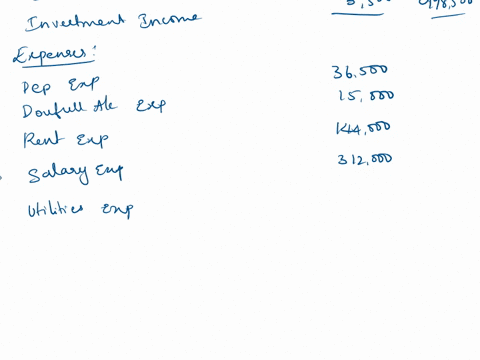 Investment Income
Expenses:
Dep Exp 36,500
Doufull A/c Exp 15,000
Rent Exp 144,000
Salary Exp 312,000
Utilities Exp